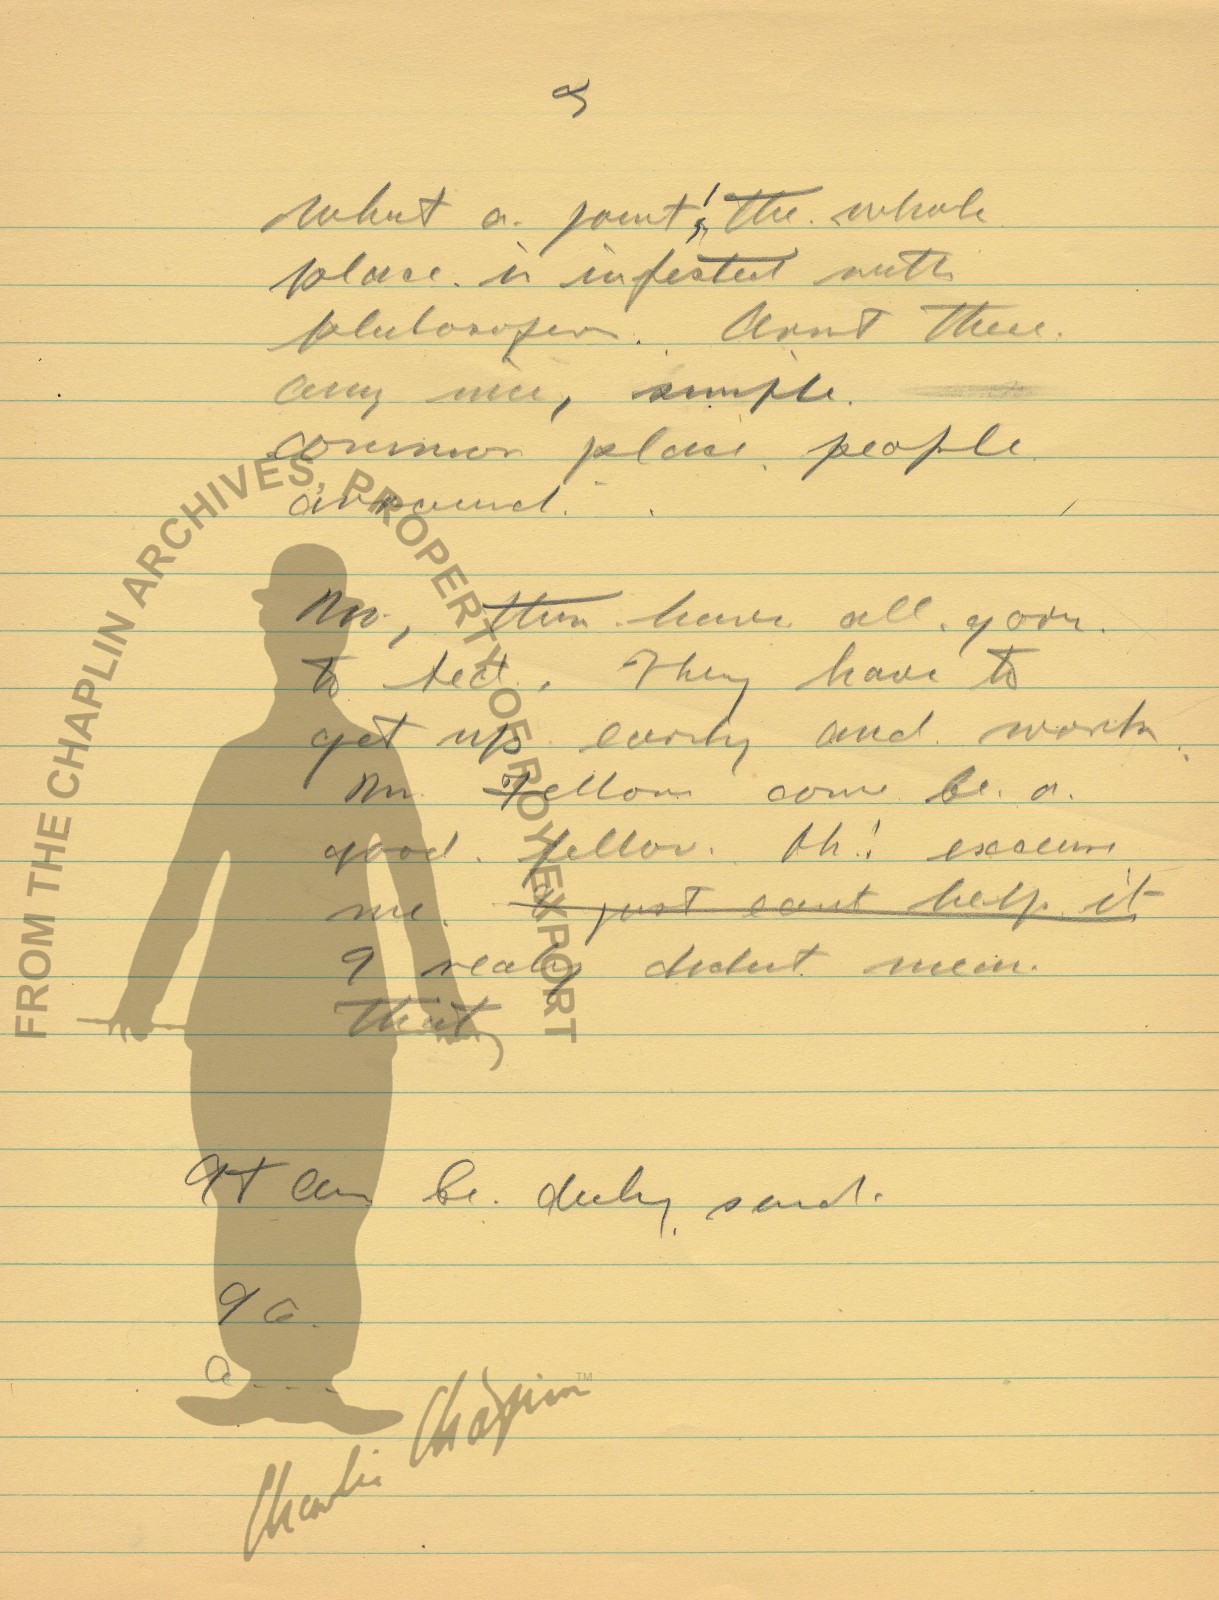 What a joint! the whole
place is infested with
philosofers. Arnt there
any nice, simple
common place people
around.
No, then have all gorn
to bed. They have to
get up early and work
Mr Fellow come be a
good fellow. Oh! excuse
me. I just cant help it
I really didnt mean
that
It can be duly said.
I a.
a ----
FROM THE CHAPLIN ARCHIVES, PROPERTY OF ROY EXPORT
Charlie Chaplin TM